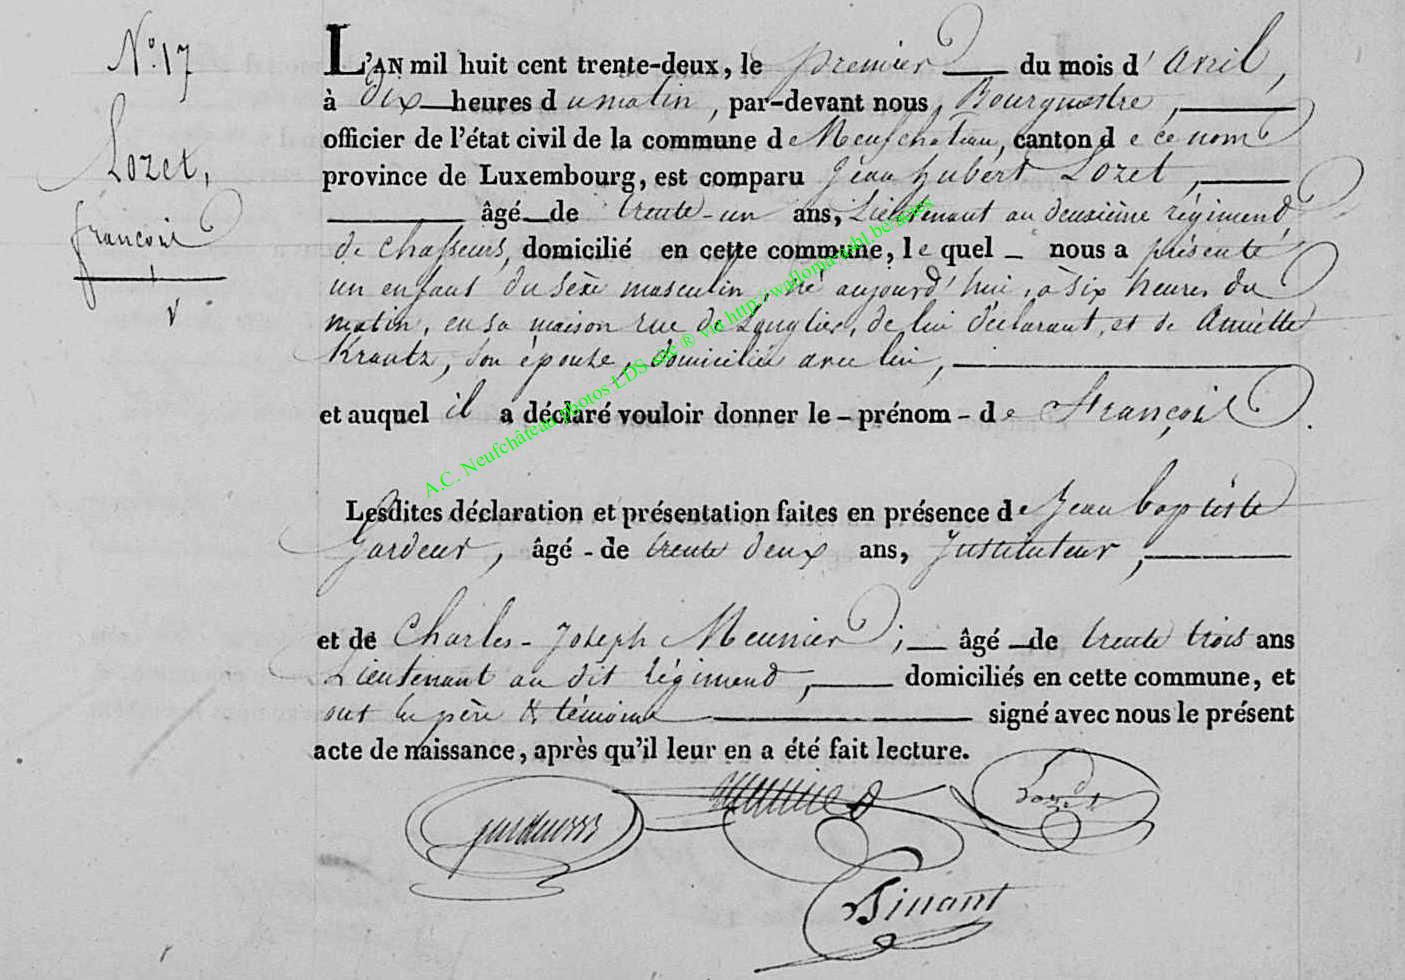 N.° 17
Lozet,
françois
L'AN mil huit cent trente-deux, le premier du mois d' avril,
à dix heures du matin, par-devant nous, Bourgmestre,
officier de l'état civil de la commune de Neufchateau, canton de ce nom
province de Luxembourg, est comparu Jean hubert Lozet,
âgé de trente-un ans, Lieutenant au deuxième régiment
de chasseurs, domicilié en cette commune, lequel nous a présenté
un enfant du sèxe masculin, né aujourd'hui, à six heures du
matin, en sa maison rue de Longlier, de lui déclarant, et de
Krantz, son épouse, domiciliée avec lui,
et auquel il a déclaré vouloir donner le - prénom - de François.
Lesdites déclaration et présentation faites en présence de Jean baptiste
Gardeur, âgé - de trente deux ans, Instituteur,
et de Charles-Joseph Meunier; âgé de trente trois ans
Lieutenant au dit régiment, domiciliés en cette commune, et
ont les père & témoins signé avec nous le présent
acte de naissance, après qu'il leur en a été fait lecture.
Lozet
Dinant
A.C. Neufchâteau photos LDS site ® via http://wallonia-asbl.be/actes